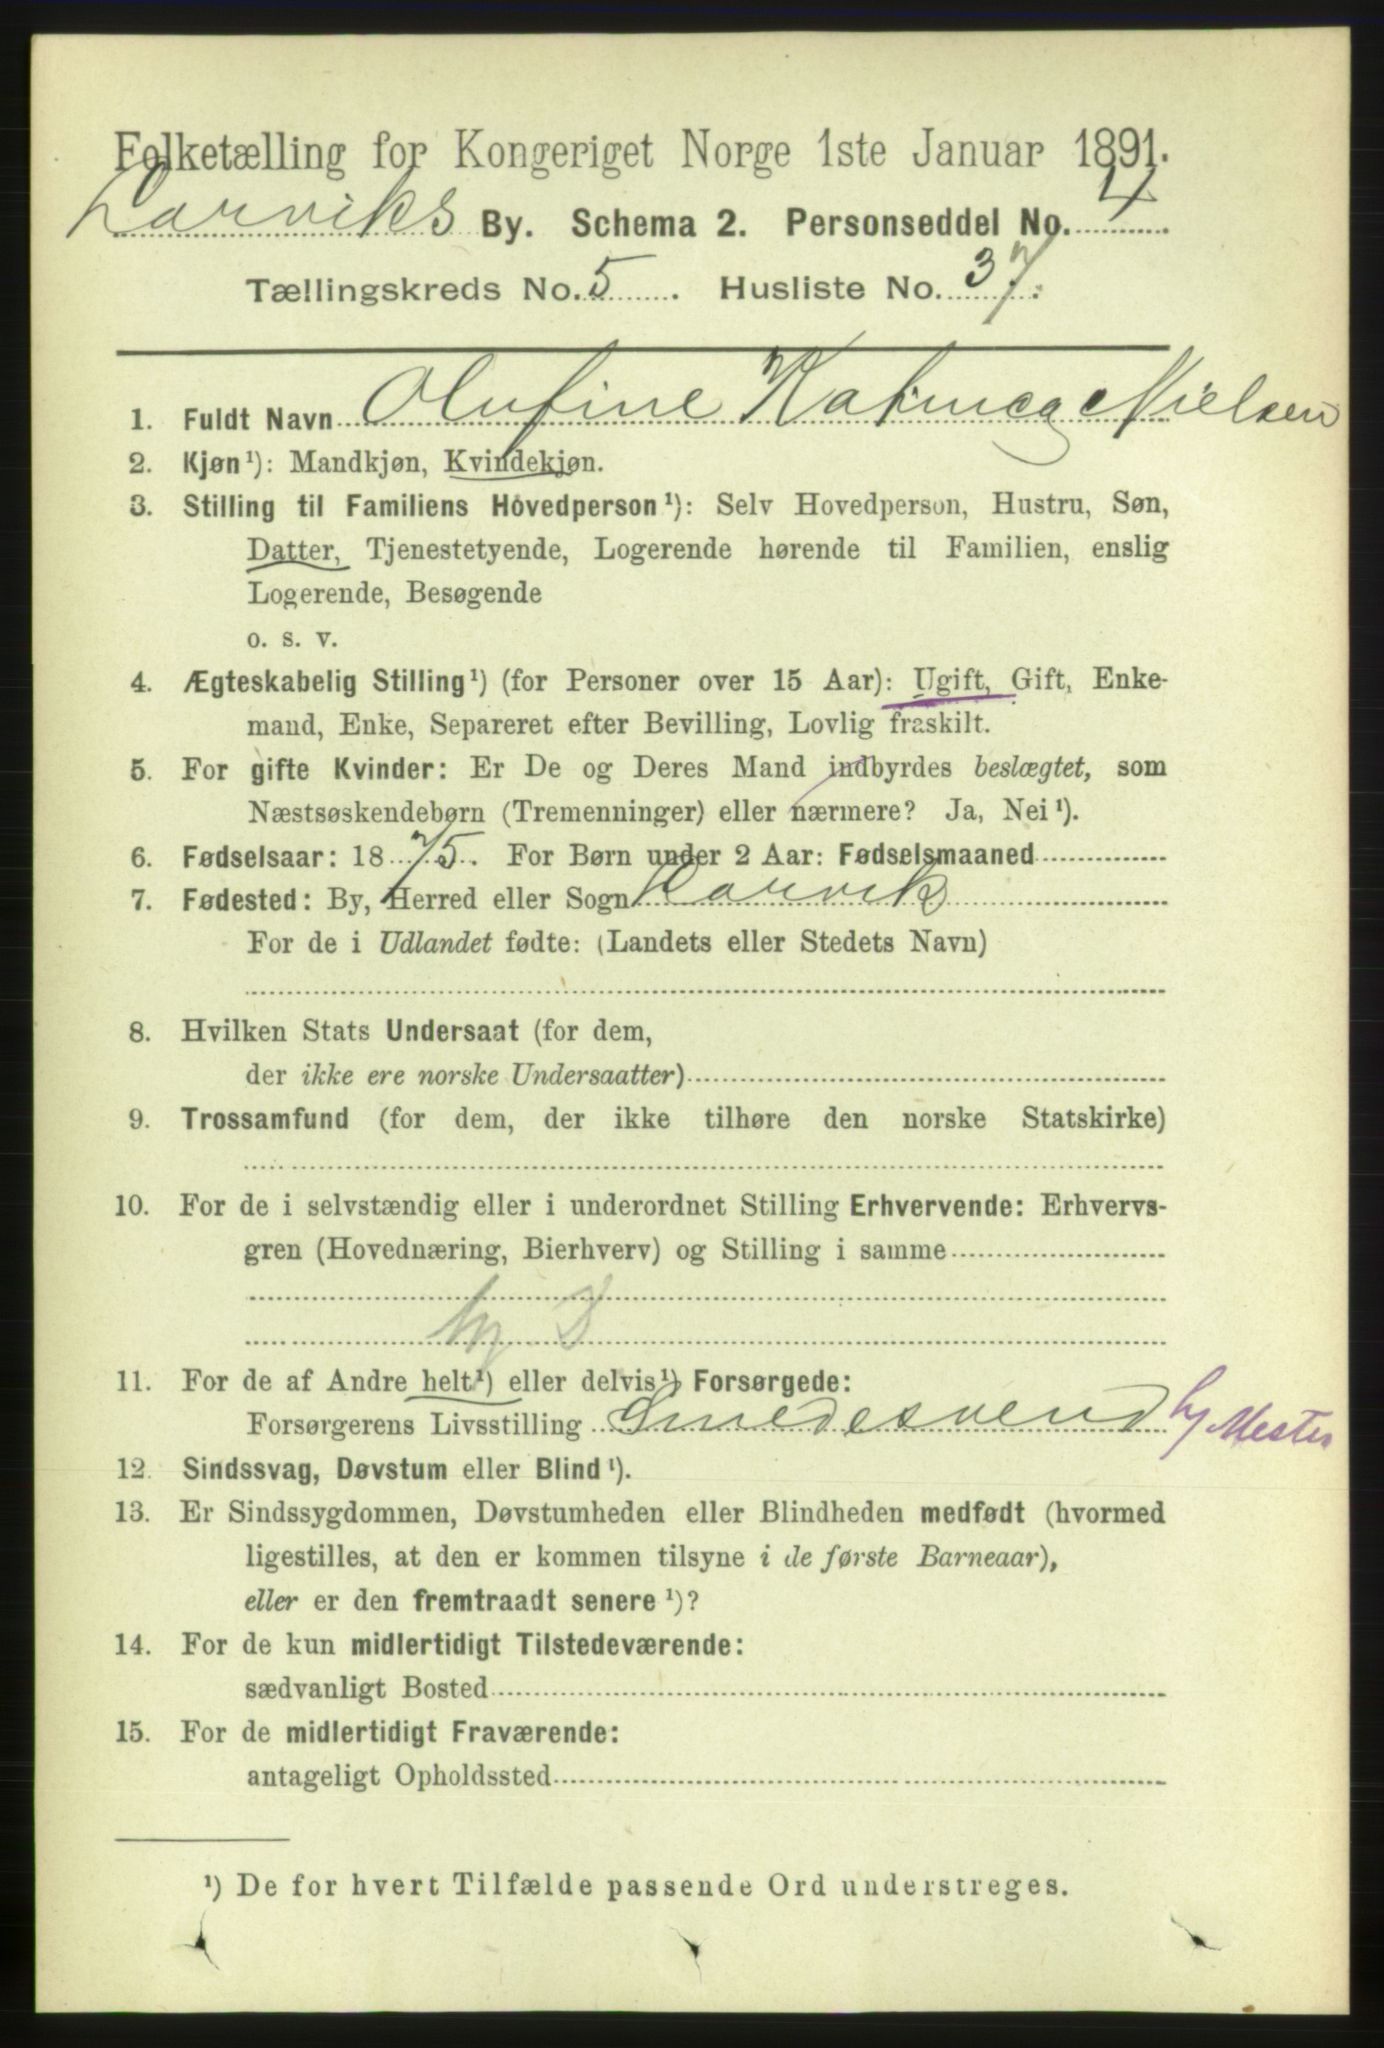 Folketælling for Kongeriget Norge 1ste Januar 1891.
Larviks By. Schema 2. Personseddel No. 4
Tællingskreds No. 5. Husliste No. 37.
1. Fuldt Navn Olufine Nielsen
2. Kjøn¹): Mandkjøn, Kvindekjøn.
3. Stilling til Familiens Hovedperson¹): Selv Hovedperson, Hustru, Søn,
Datter, Tjenestetyende, Logerende hørende til Familien, enslig
Logerende, Besøgende
o. s. v.
4. Ægteskabelig Stilling¹) (for Personer over 15 Aar): Ugift, Gift, Enke-
mand, Enke, Separeret efter Bevilling, Lovlig fraskilt.
5. For gifte Kvinder: Er De og Deres Mand indbyrdes beslægtet, som
Næstsøskendebørn (Tremenninger) eller nærmere? Ja, Nei¹).
6. Fødselsaar: 1875. For Børn under 2 Aar: Fødselsmaaned
7. Fødested: By, Herred eller Sogn Larvik
For de i Udlandet fødte: (Landets eller Stedets Navn)
8. Hvilken Stats Undersaat (for dem,
der ikke ere norske Undersaatter)
9. Trossamfund (for dem, der ikke tilhøre den norske Statskirke)
10. For de i selvstændig eller i underordnet Stilling Erhvervende: Erhvervs-
gren (Hovednæring, Bierhverv) og Stilling i samme
11. For de af Andre helt¹) eller delvis¹) Forsørgede:
Forsørgerens Livsstilling Smedesvend Mester
12. Sindssvag, Døvstum eller Blind¹).
13. Er Sindssygdommen, Døvstumheden eller Blindheden medfødt (hvormed
ligestilles, at den er kommen tilsyne i de første Barneaar),
eller er den fremtraadt senere¹)?
14. For de kun midlertidigt Tilstedeværende:
sædvanligt Bosted
15. For de midlertidigt Fraværende:
antageligt Opholdssted
¹) De for hvert Tilfælde passende Ord understreges.